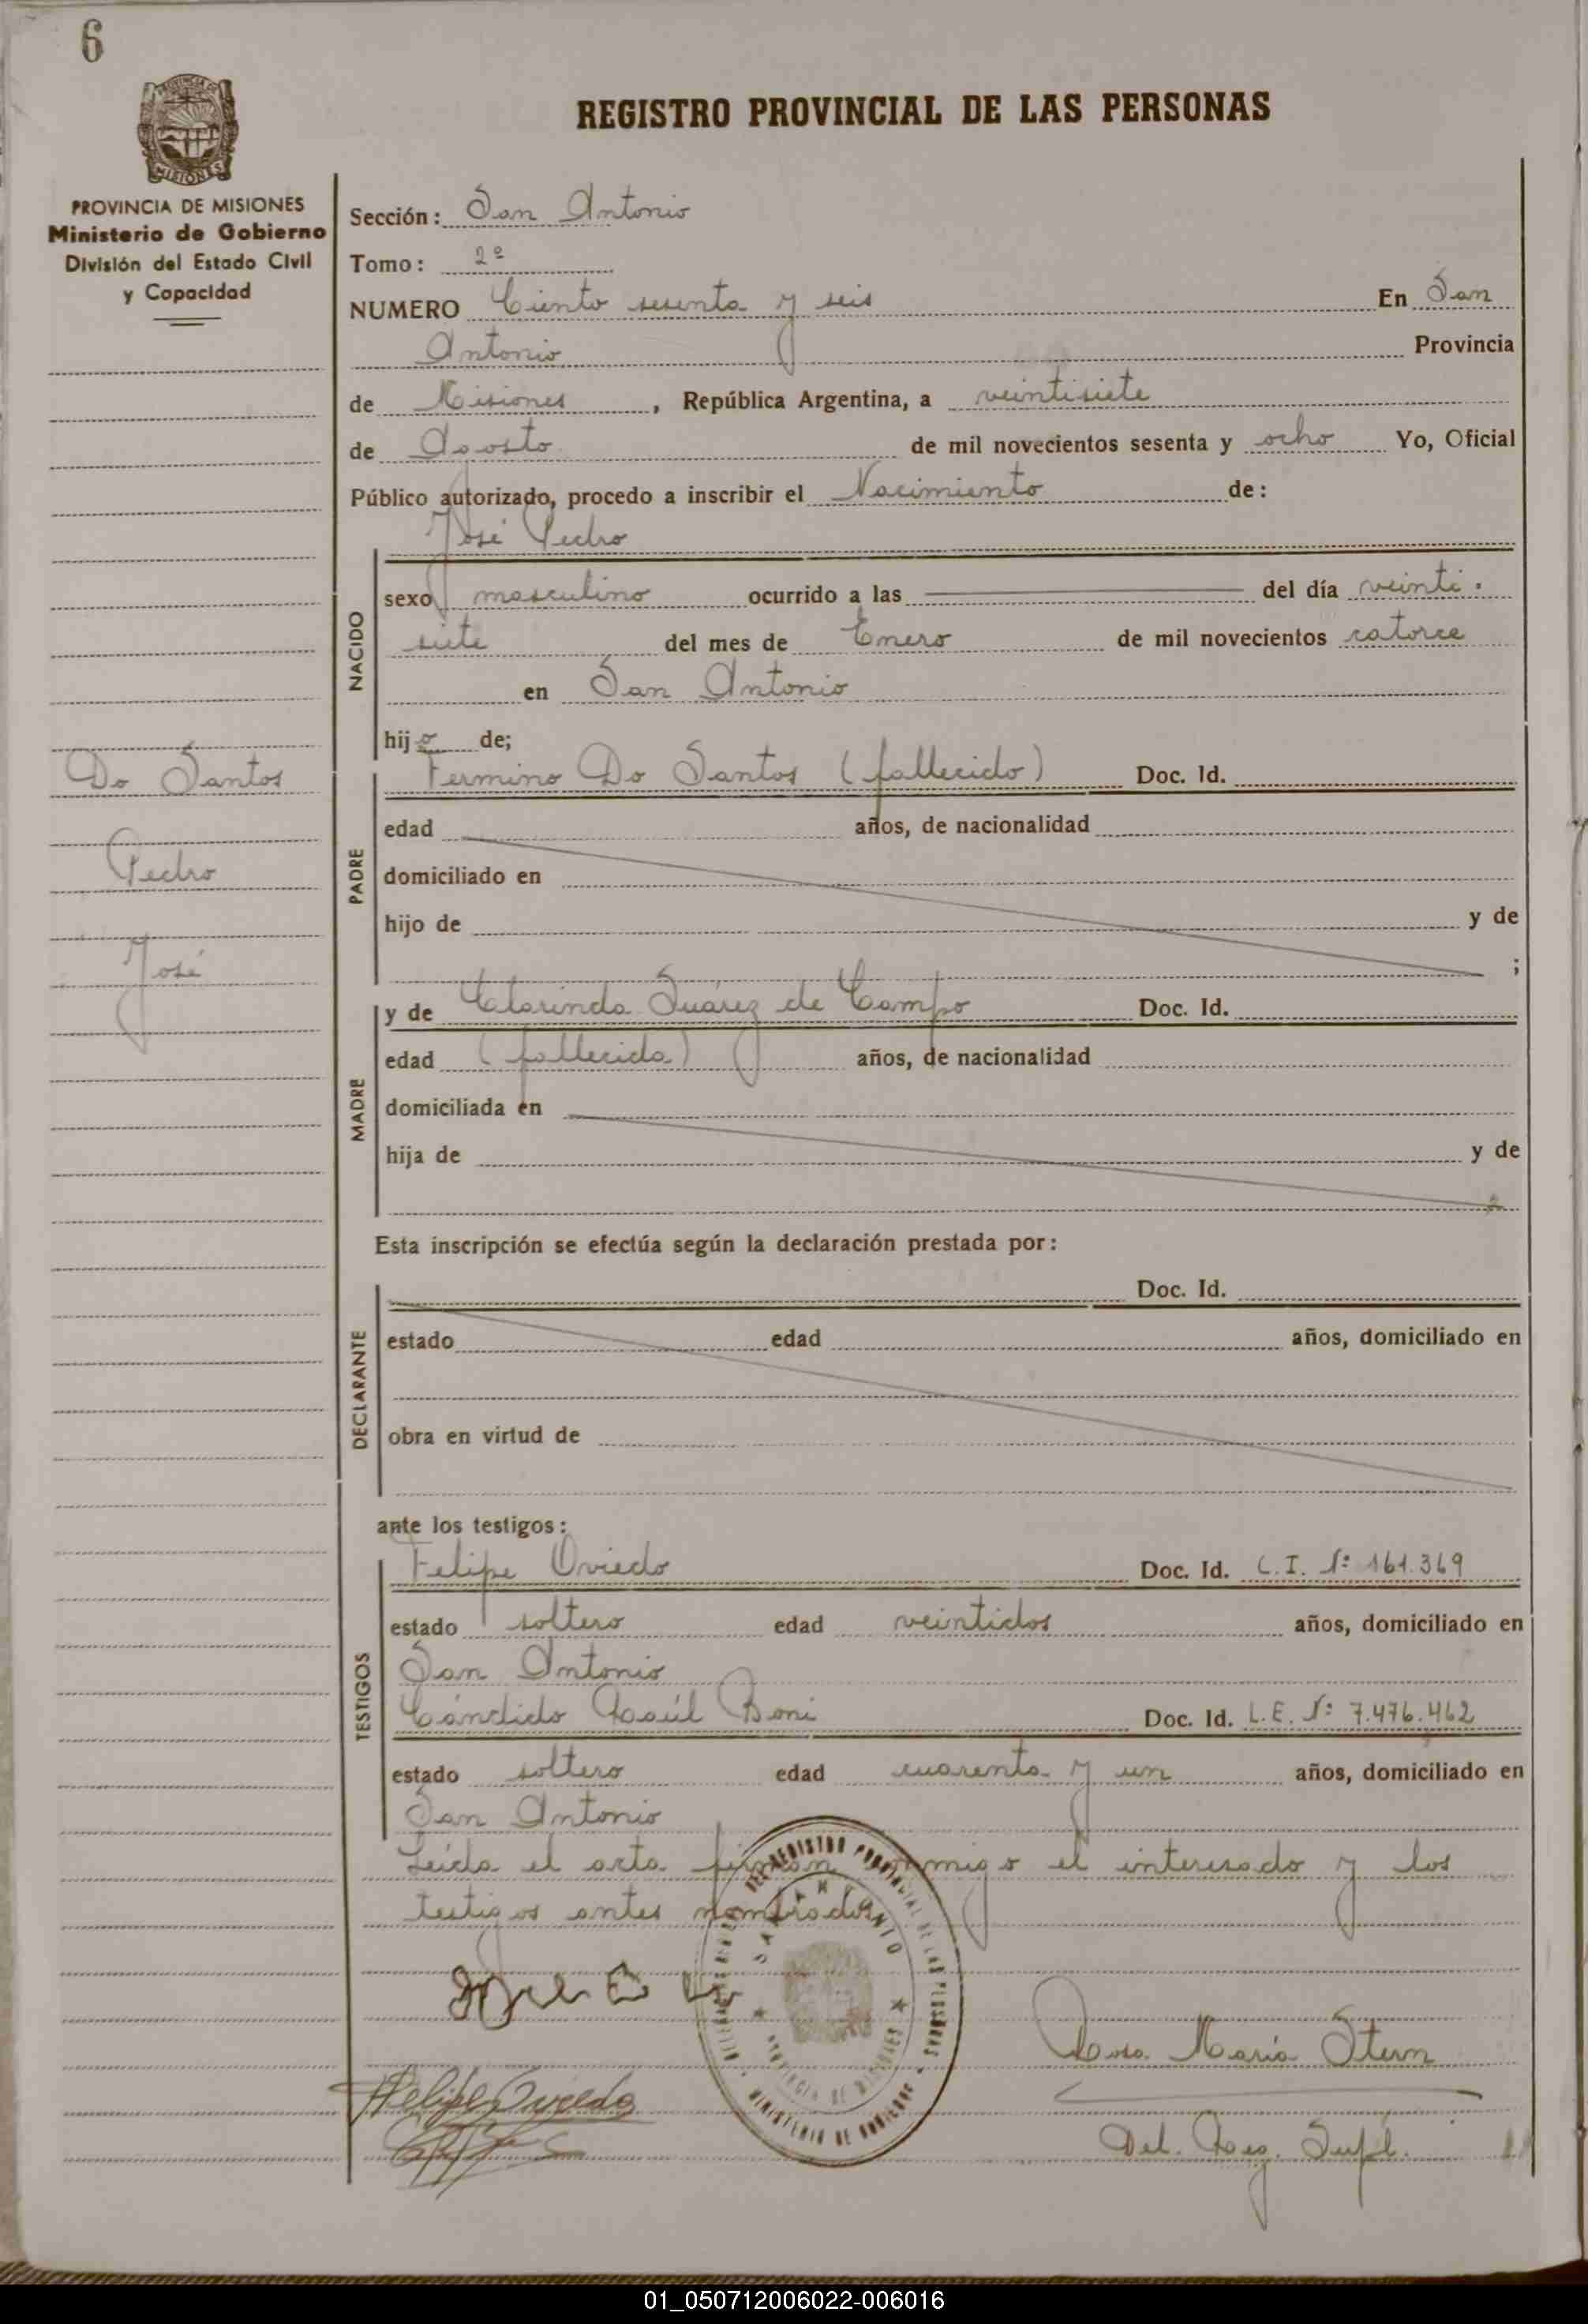 6
REGISTRO PROVINCIAL DE LAS PERSONAS
PROVINCIA DE MISIONES
Ministerio de Gobierno
División del Estado Civil
y Capacidad
Sección: San Antonio
Tomo: 2º
NUMERO Ciento sesenta y seis En San
Antonio Provincia
de Misiones, República Argentina, a veintisiete
de Agosto de mil novecientos sesenta y ocho Yo, Oficial
Público autorizado, procedo a inscribir el Nacimiento de:
José Pedro
NACIDO
sexo masculino ocurrido a las del día veinti-
siete del mes de Enero de mil novecientos catorce
en San Antonio
hijo de;
Do Santos
Pedro
José
PADRE
Fermino Do Santos (fallecido) Doc. Id.
edad años, de nacionalidad
domiciliado en
hijo de y de
;
MADRE
y de Clarinda Suárez de Campo Doc. Id.
edad (fallecida) años, de nacionalidad
domiciliada en
hija de y de
Esta inscripción se efectúa según la declaración prestada por:
DECLARANTE
Doc. Id.
estado edad años, domiciliado en
obra en virtud de
ante los testigos:
TESTIGOS
Felipe Oviedo Doc. Id. C.I. Nº 161.369
estado soltero edad veintidos años, domiciliado en
San Antonio
Cándido Raúl Boni Doc. Id. L.E. Nº 7.476.462
estado soltero edad cuarenta y un años, domiciliado en
San Antonio
Leída el acta firman conmigo el interesado y los
testigos antes nombrados
REGISTRO PROVINCIAL DE LAS PERSONAS
SAN ANTONIO
PROVINCIA DE MISIONES
MINISTERIO DE GOBIERNO
Felipe Oviedo
Rosa María Stern
Del. Reg. Supl.
01_050712006022-006016